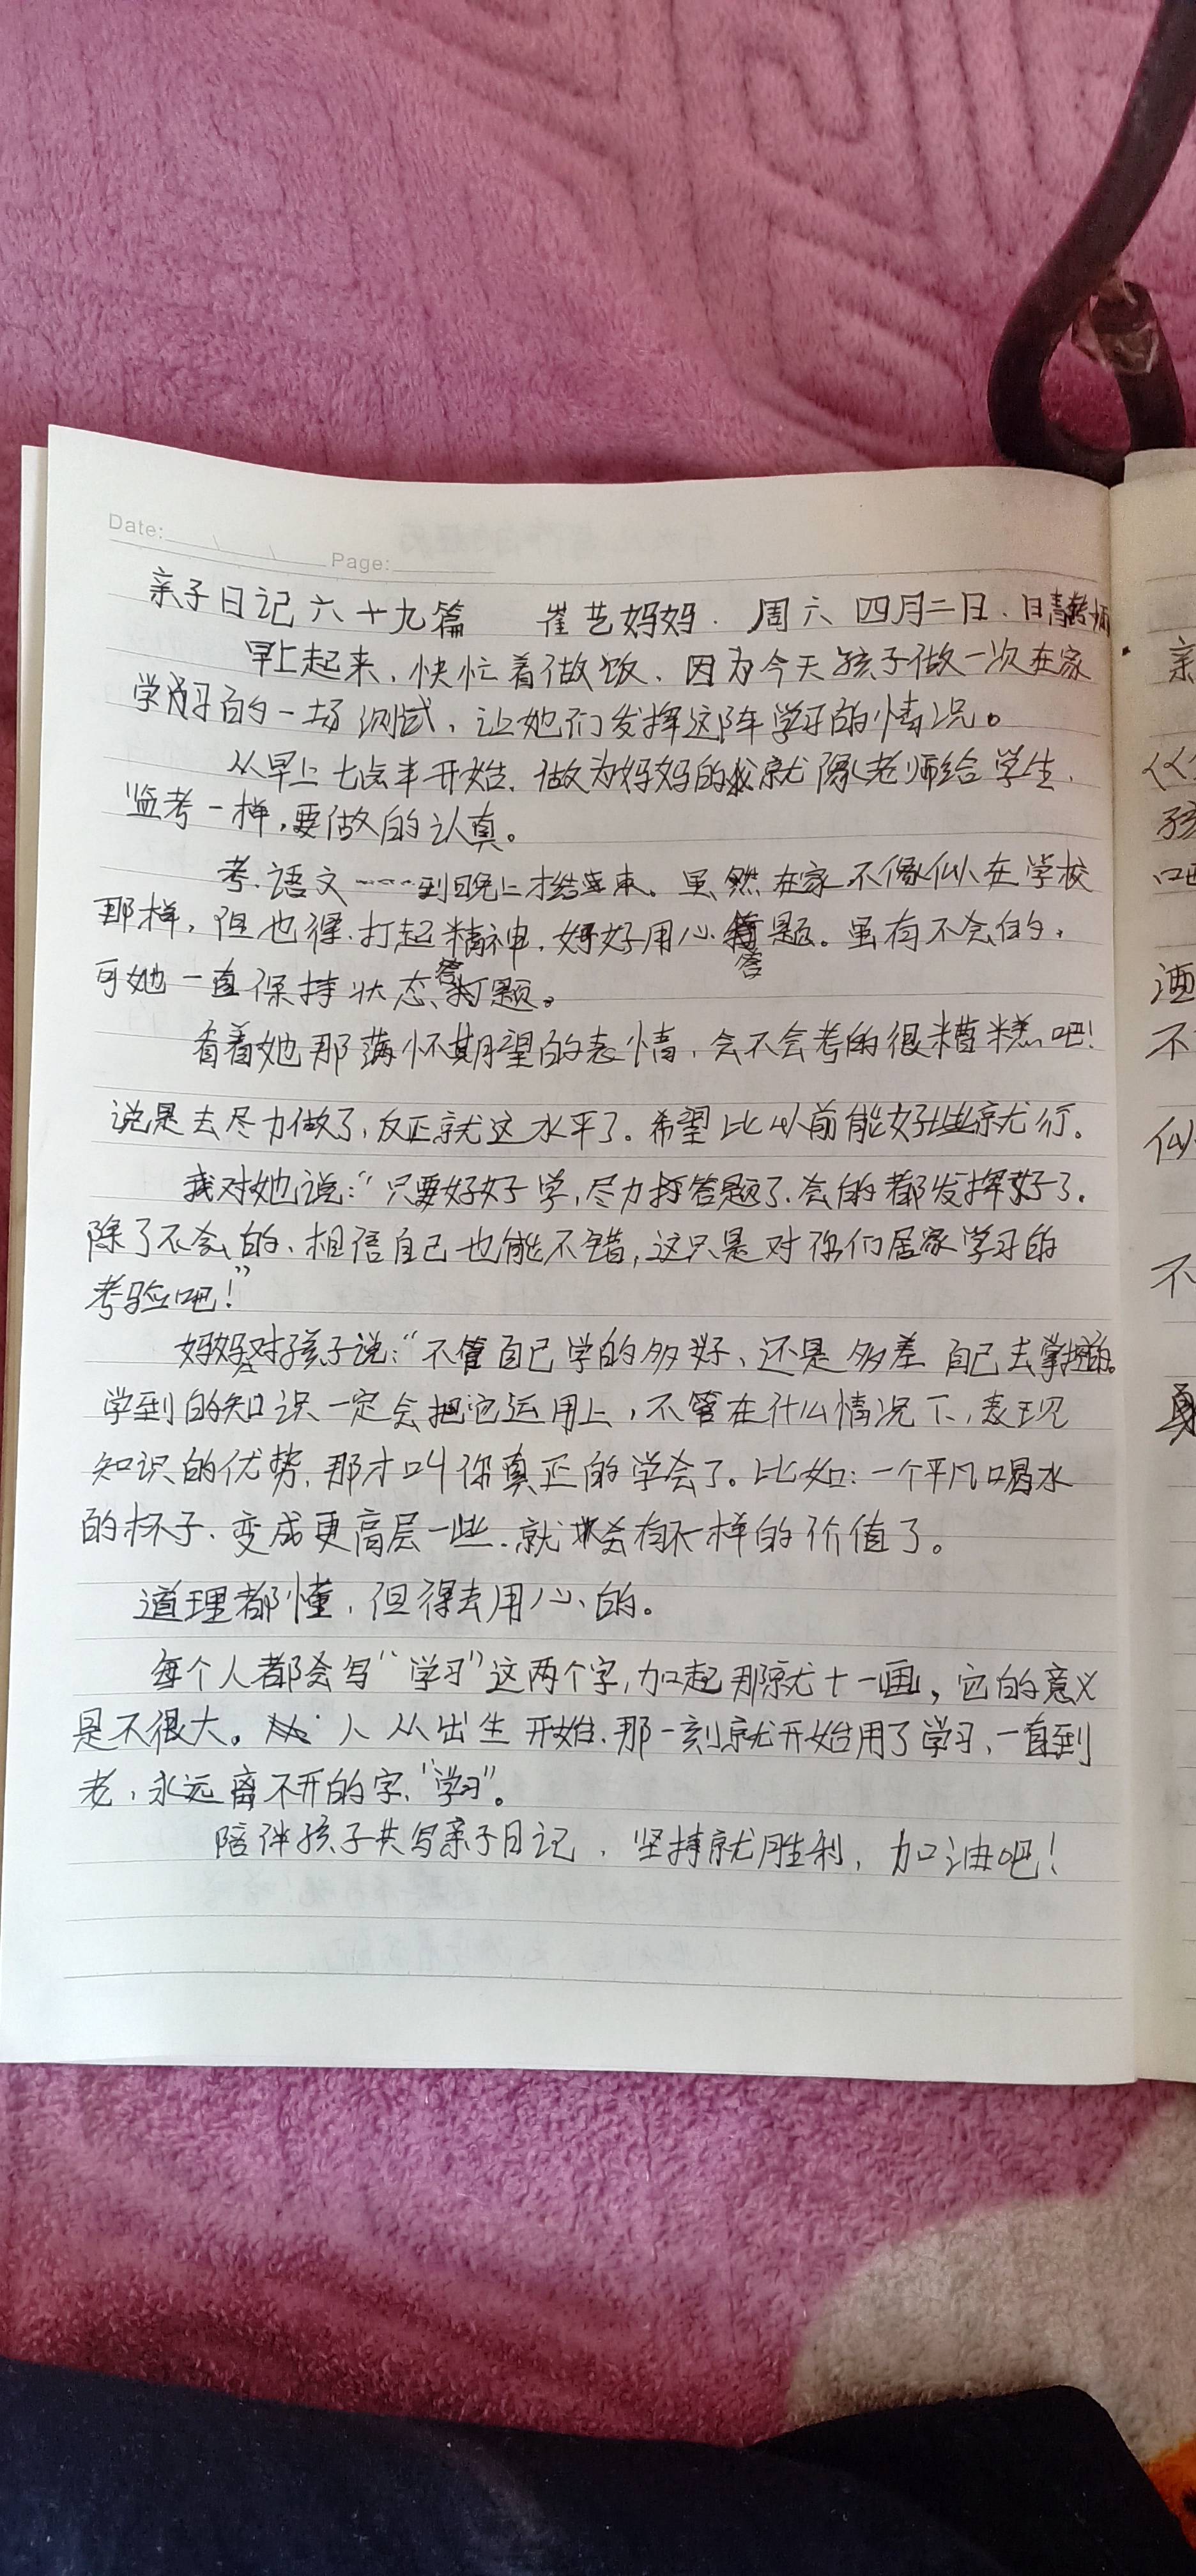 Date:
Page:
亲子日记六十九篇 崔艺妈妈. 周六 四月二日.
早上起来,快忙着做饭、因为今天孩子做一次在家
学习的一场测试,让她们发挥这阵学习的情况。
从早上七点半开始.做为妈妈的我就像老师给学生.
监考一样,要做的认真。
考.语文----到晚上才结束。虽然在家.不像似在学校
那样,但也得.打起精神.好好用心答题。虽有不会的,
可她一直保持状态、答题。
看着她那满怀期望的表情,会不会考的很糟糕吧!
说是去尽力做了,反正就这水平了.希望比以前能好些就行。
我对她说:“只要好好学,尽力打答题了.会的都发挥好了.
除了不会的、相信自己也能不错,这只是对你们居家学习的
考验吧!”
妈妈对孩子说:“不管自己学的多好、还是多差 自己去掌握的。
学到的知识一定会把它运用上,不管在什么情况下,表现
知识的优势.那才叫你真正的学会了。比如:一个平凡喝水
的杯子.变成更高层一些.就会有不一样的价值了。
道理都懂,但得去用心的。
每个人都会写“学习”这两个字,加起那就十一画,它的意义
是不很大。人从出生开始.那一刻就开始用了学习、一直到
老,永远离不开的字、“学习”。
陪伴孩子共写亲子日记,坚持就胜利,加油吧!
亲
孩
吧
酒
不
似
不